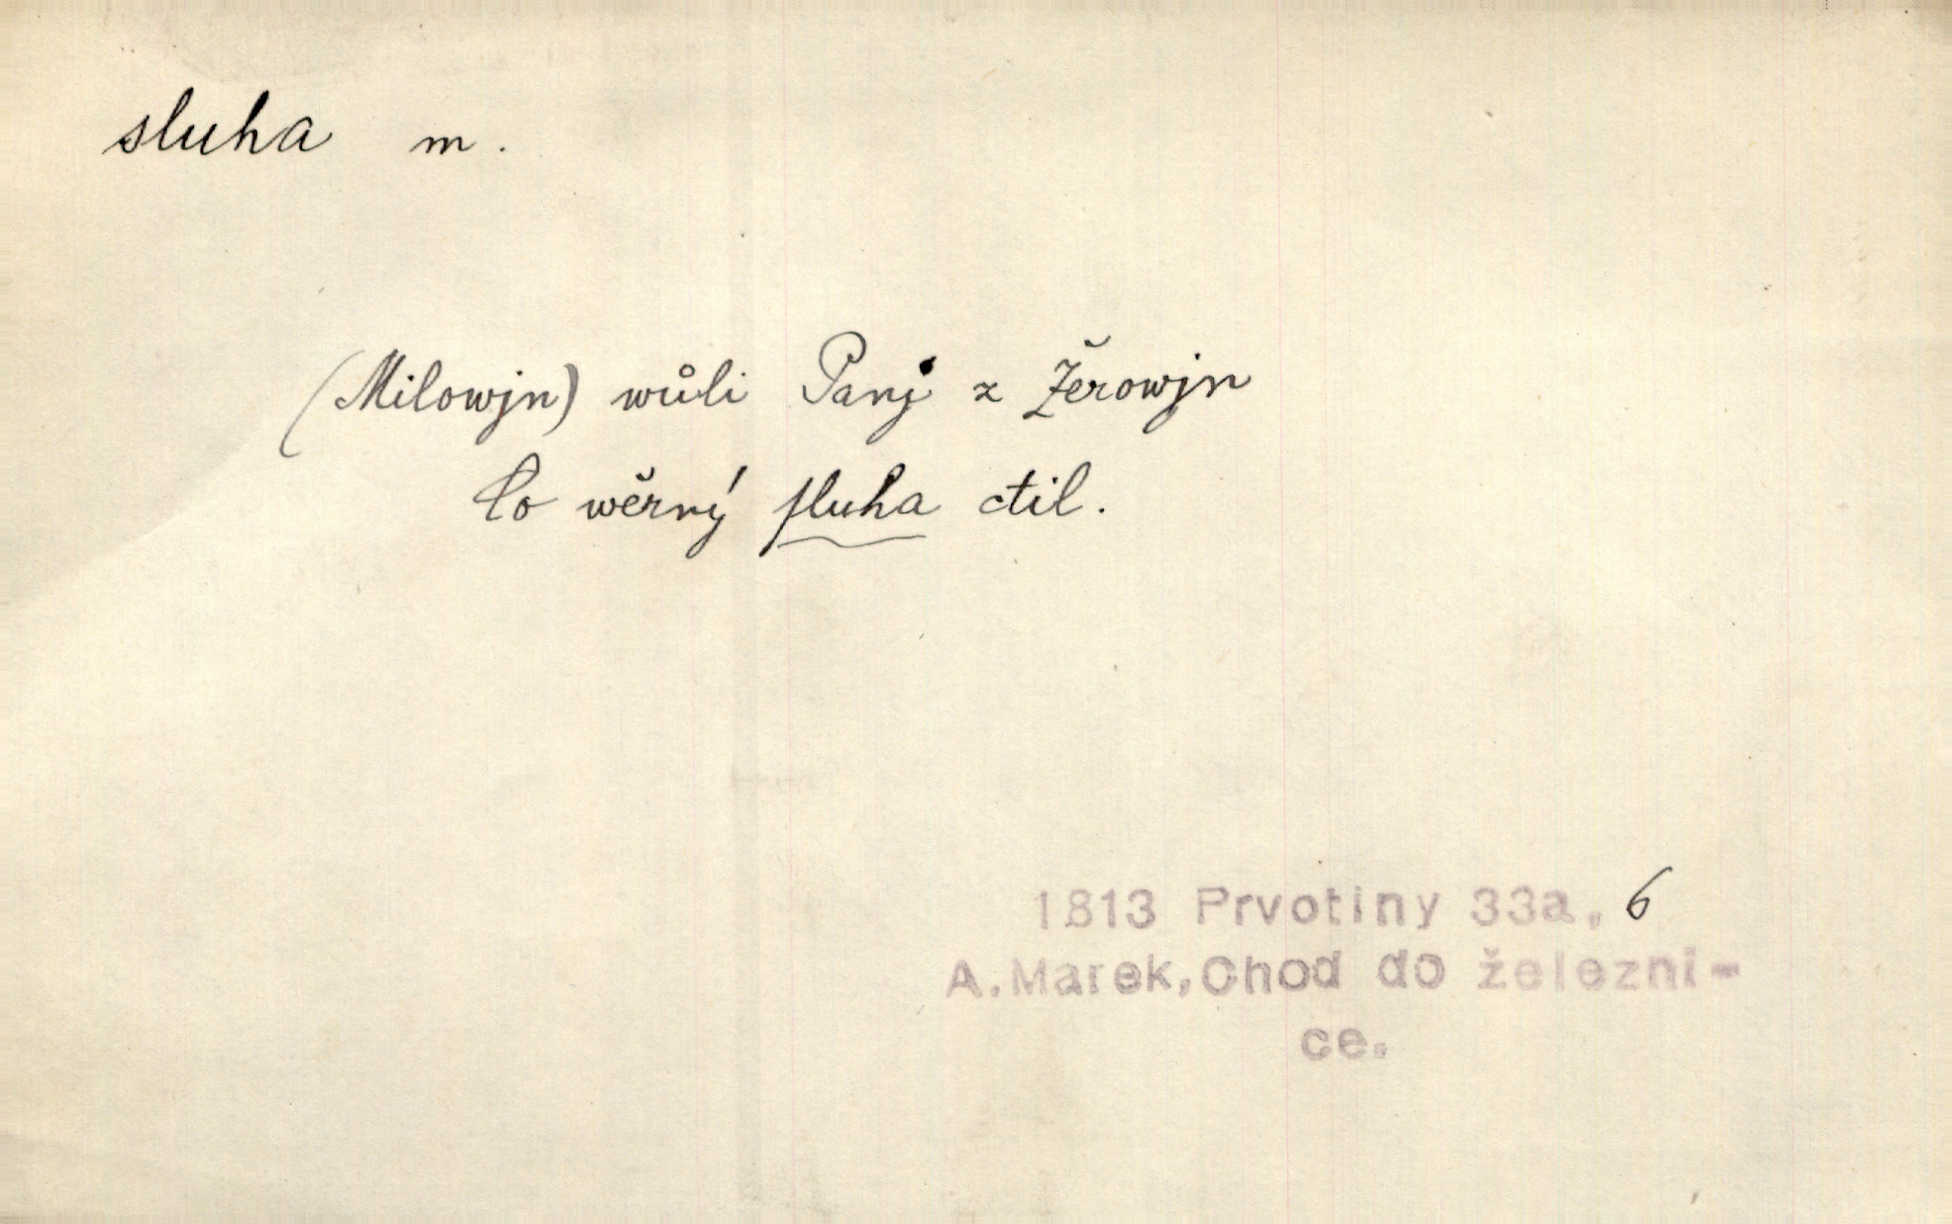 sluha m.
(Milowjn) wůli Panj z Žerowjn
Co wěrný ſluha ctil.
1813 Prvotiny 33a, 6
A.Marek,Chod do železni-
ce.